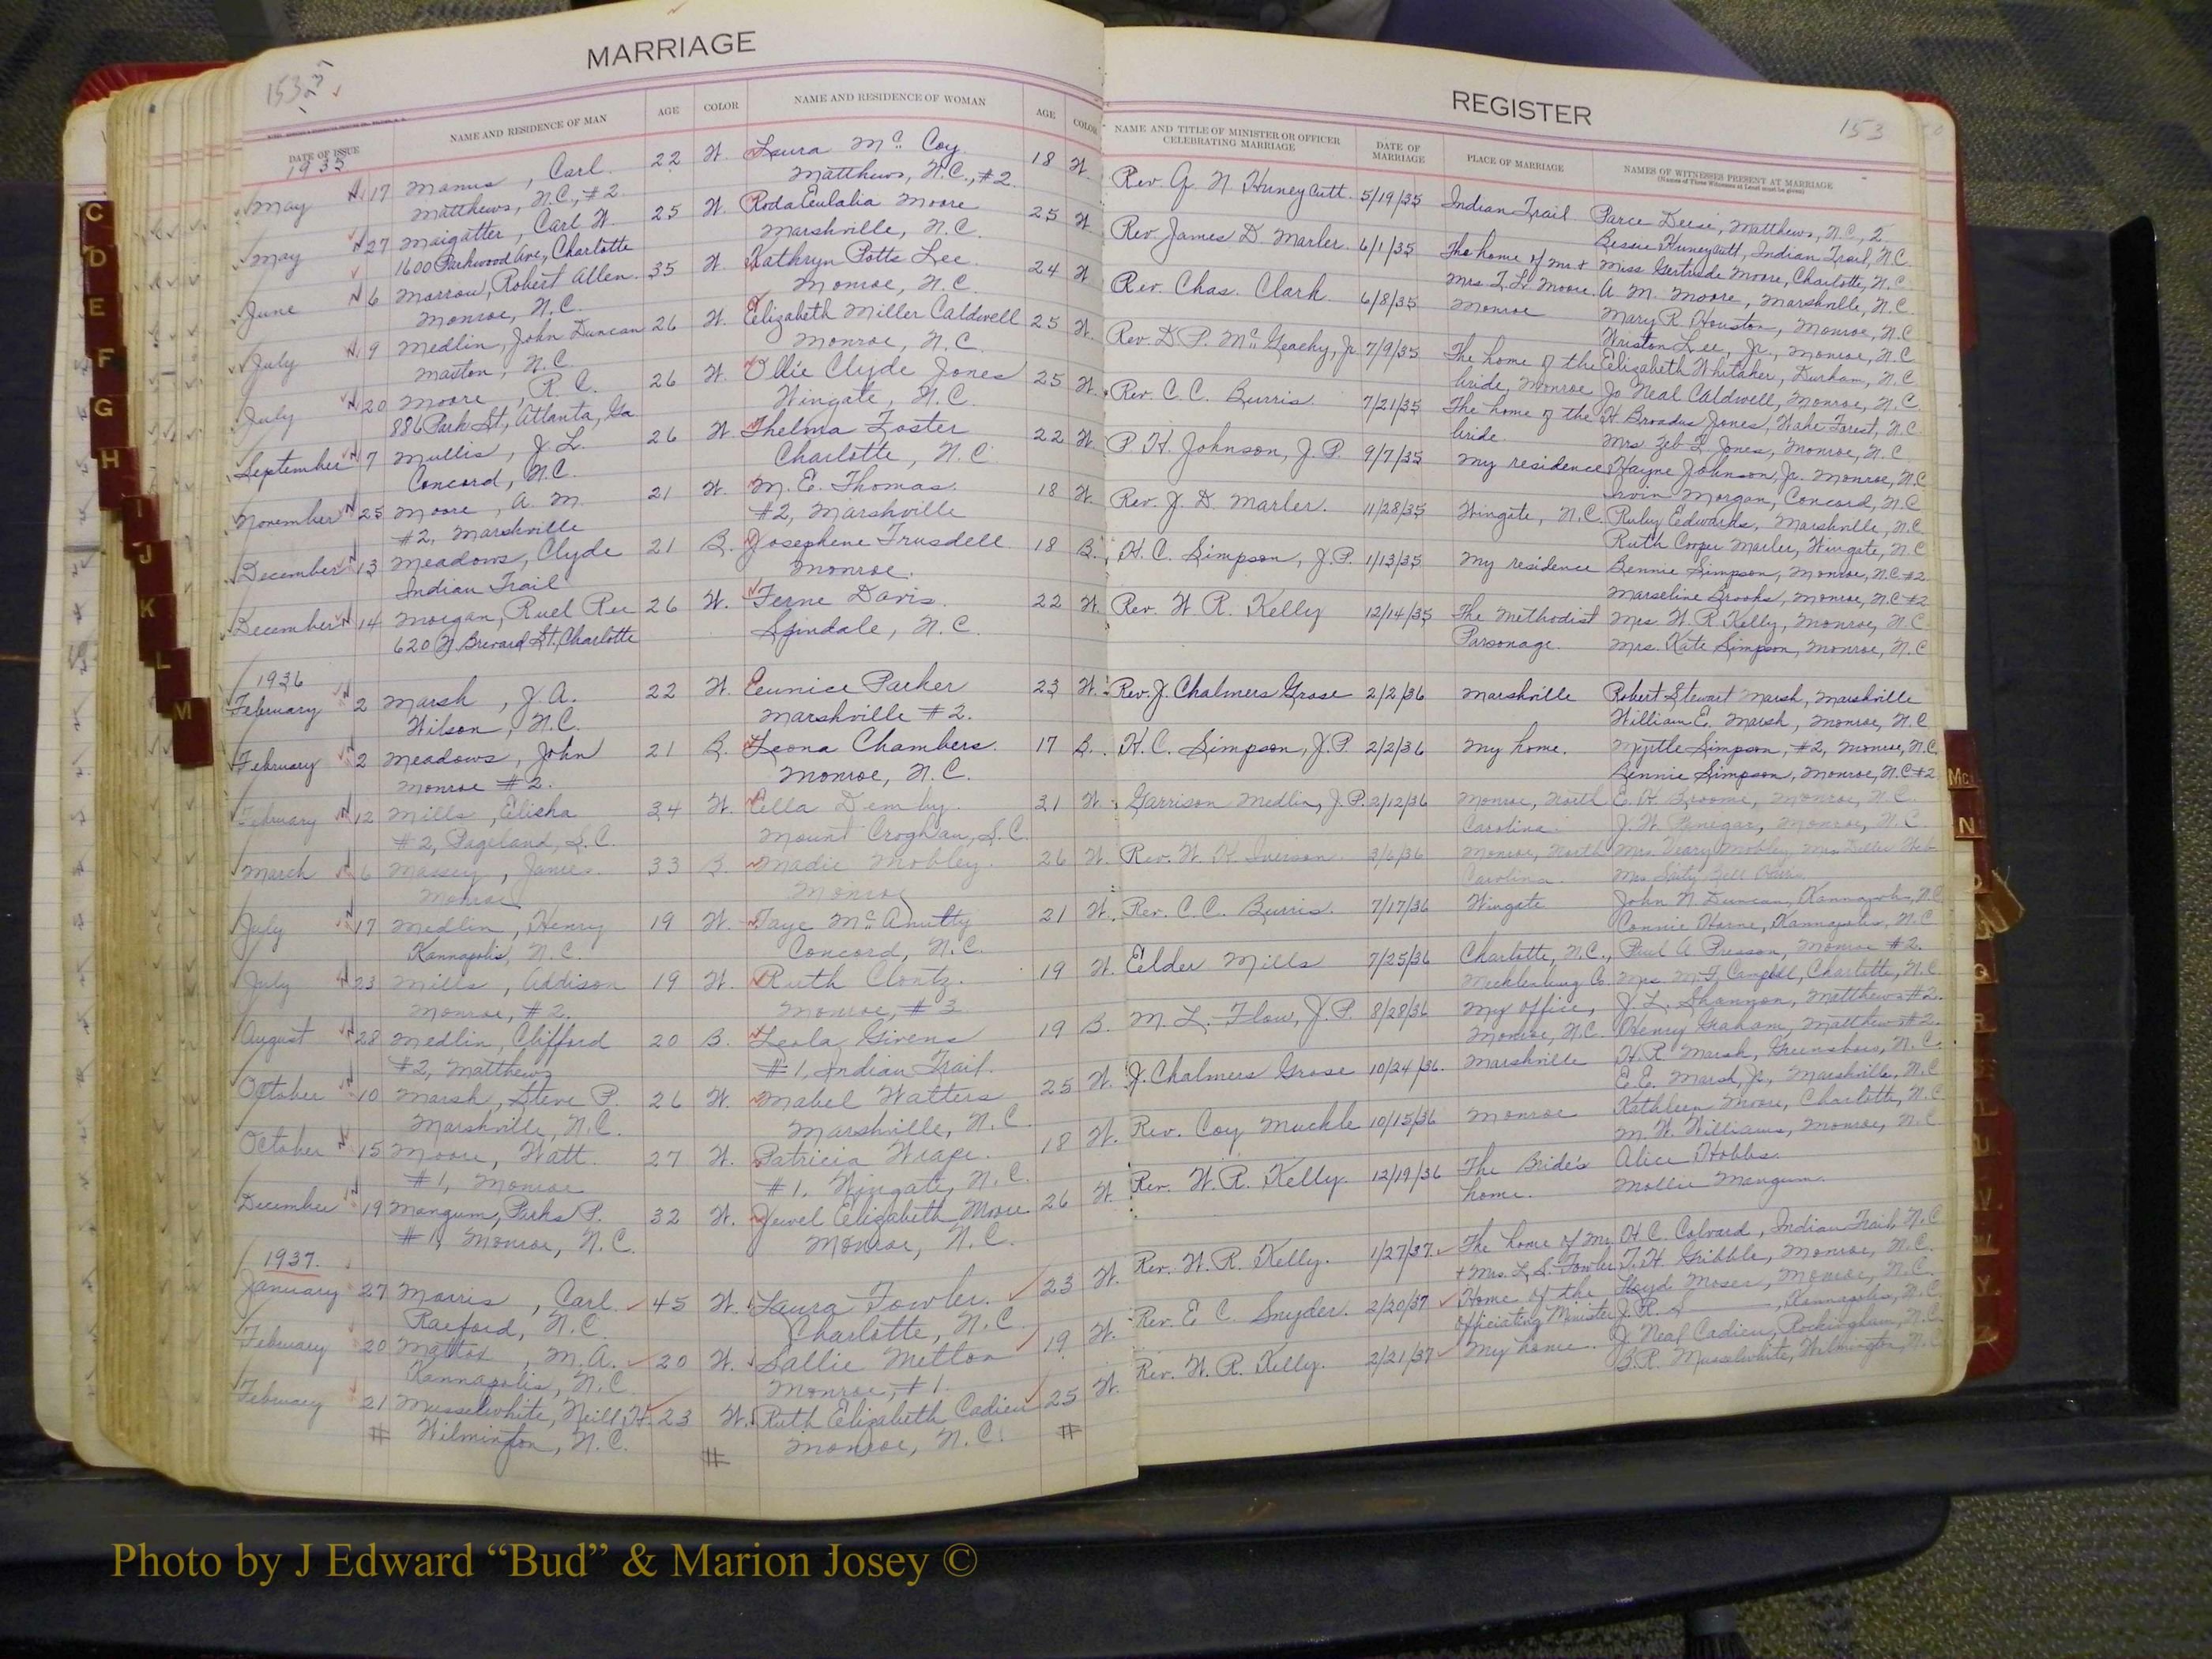 MARRIAGE
153
DATE OF ISSUE NAME AND RESIDENCE OF MAN AGE COLOR NAME AND RESIDENCE OF WOMAN AGE COLOR
1935
May 17 Manus, Carl 22 W. Laura McCoy 18 W.
Matthews, N.C., #2 Matthews, N.C., #2
May 27 Maigatter, Carl W. 25 W. Roda Eulalia Moore 25 W.
1600 Parkwood Ave, Charlotte Marshville, N.C.
June 6 Marrow, Robert Allen 35 W. Kathryn Potts Lee 24 W
Monroe, N.C. Monroe, N.C.
July 9 Medlin, John Duncan 26 W. Elizabeth Miller Caldwell 25 W.
Maxton, N.C. Monroe, N.C.
July 20 Moore, R.C. 26 W. Ollie Clyde Jones 25 W.
886 Park St, Atlanta, Ga Wingate, N.C.
September 7 Mullis, J.L. 26 W. Thelma Foster 22 W.
Concord, N.C. Charlotte, N.C
November 25 Moore, A. M. 21 W. M. E. Thomas 18 W.
#2, Marshville #2, Marshville
December 13 Meadows, Clyde 21 B. Josephene Trusdell 18 B.
Indian Trail Monroe.
December 14 Morgan, Ruel Ree 26 W. Ferne Davis 22 W.
620 N Brevard St, Charlotte Spindale, N.C.
1936
February 2 Marsh, J.A. 22 W. Eunice Parker 23 W.
Wilson, N.C. Marshville #2.
February 2 Meadows, John 21 B. Leona Chambers. 17 B.
Monroe #2. Monroe, N.C.
February 12 Mills, Elisha 34 W. Ella Demby 31 W.
#2, Pageland, S.C. Mount Croghan, S.C.
March 6 Massey, James 33 B. Madie Mobley 26 W.
Monroe Monroe
July 17 Medlin, Henry 19 W. Faye 21 W.
Kannapolis, N.C. Concord, N.C.
July 23 Mills, Addison 19 W. Ruth Clontz. 19 W.
Monroe, #2. Monroe, #3
August 28 Medlin, Clifford 20 B. Leola Givens 19 B.
#2, Matthews #1, Indian Trail.
October 10 Marsh, Steve P. 26 W. Mabel Watters 25 W.
Marshville, N.C. Marshville, N.C.
October 15 Moore, Watt 27 W. Patricia Wrape. 18 W.
#1, Monroe #1, Wingate, N.C.
December 19 Mangum, Parks P. 32 W. Jewel Elizabeth Moore 26 W.
#1, Monroe, N.C. Monroe, N.C.
1937.
January 27 Morris, Carl 45 W. Laura Fowler. 23 W.
Raeford, N.C. Charlotte, N.C.
February 20 Mattox, M.A. 20 W. Sallie Metton 19 W.
Kannapolis, N.C. Monroe, #1.
February 21 Musselwhite, Neill H. 23 W. Ruth Elizabeth Cadieu 25 W.
Wilmington, N.C. Monroe, N.C.
# # #
REGISTER
153
NAME AND TITLE OF MINISTER OR OFFICER CELEBRATING MARRIAGE DATE OF MARRIAGE PLACE OF MARRIAGE NAMES OF WITNESSES PRESENT AT MARRIAGE
(Names of Three Witnesses at Least must be given)
Rev. J. N. Huneycutt. 5/19/35 Indian Trail Parce Deese, Matthews, N.C., 2
Bessie Huneycutt, Indian Trail, N.C.
Rev. James D. Marler. 6/1/35 The home of Mr + Miss Gertrude Moore, Charlotte, N.C.
Mrs. T. L. Moore. A. M. Moore, Marshville, N.C.
Rev. Chas. Clark. 6/8/35 Monroe Mary R. Houston, Monroe, N.C
Wriston Lee, Jr., Monroe, N.C
Rev. D. P. McGeachy, Jr. 7/9/35 The home of the Elizabeth Whitaker, Durham, N.C
bride, Monroe Jo Neal Caldwell, Monroe, N.C.
Rev. C.C. Burris. 7/21/35 The home of the H. Broadus Jones, Wake Forest, N.C.
bride. Mrs. Zeb L. Jones, Monroe, N.C
P. H. Johnson, J.P. 9/7/35 My residence Hayne Johnson, Jr. Monroe, N.C
Irvin Morgan, Concord, N.C
Rev. J. D. Marler. 11/28/35 Wingate, N.C. Ruby Edwards, Marshville, N.C
Ruth Cooper Marler, Wingate, N.C
H. C. Simpson, J.P. 1/13/35 My residence Bennie Simpson, Monroe, N.C. #2
Marseline Brooks, Monroe, N.C #2
Rev. W. R. Kelly 12/14/35 The Methodist Mrs. W. R. Kelly, Monroe, N.C.
Parsonage. Mrs. Kate Simpson, Monroe, N.C
Rev. J. Chalmers Grose 2/2/36 Marshville Robert Stewart Marsh, Marshville
William E. Marsh, Monroe, N.C
H.C. Simpson, J.P. 2/2/36 My home. Myrtle Simpson, #2, Monroe, N.C.
Bennie Simpson, Monroe, N.C #2
Garrison Medlin, J.P. 2/12/36 Monroe, North E. H. Broome, Monroe, N.C.
Carolina. J. W. Finegar, Monroe, N.C
Rev. W. K. 3/6/36 Monroe, North Mrs. Mobley, Mrs.
Carolina. Mrs.
Rev. C.C. Burris. 7/17/36 Wingate John N Duncan, Kannapolis, N.C.
Connie Horne, Kannapolis, N.C
Elder Mills 7/25/36 Charlotte, N.C., Paul A Presson, Monroe #2.
Mecklenburg Co. Mrs. Campbell, Charlotte, N.C.
M. L. Flow, J.P. 8/28/36 My office, J. L. Shannon, Matthews #2.
Monroe, N.C. Henry Graham, Matthews #2.
J. Chalmers Grose 10/24/36. Marshville H.R. Marsh, Greensboro, N.C.
E.E. Marsh, Jr., Marshville, N.C
Rev. Coy Muckle 10/15/36 Monroe Kathleen Moore, Charlotte, N.C
M. W. Williams, Monroe, N.C
Rev. W. R. Kelly. 12/19/36 The Bride's Alice Hobbs.
home. Mollie Mangum.
Rev. W. R. Kelly. 1/27/37. The home of Mr. H. C. Colvard, Indian Trail, N.C
+ Mrs. L. S. Fowler T. H. Gribble, Monroe, N.C.
Rev. E C. Snyder. 2/20/37 Home of the Lloyd Moser, Monroe, N.C.
officiating Minister J. R. Kannapolis, N.C.
Rev. W. R. Kelly. 2/21/37 My home. J. Neal Cadieu, Rockingham, N.C.
B. R. Musselwhite, Wilmington, N.C
C
D
E
F
G
H
I
J
K
L
M
Mc
N
Q
R
Photo by J Edward “Bud” & Marion Josey ©